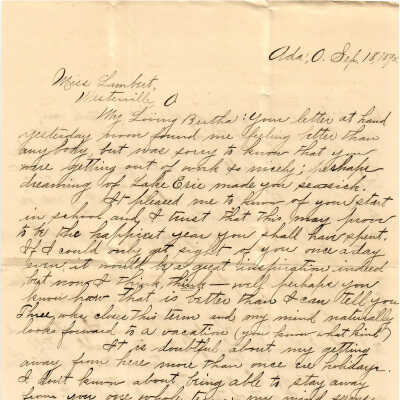 Ada, O. Sep. 18, 189
Miss Lambert,
Westerville, O
My Loving Bertha: Your letter at hand
yesterday noon found me feeling better than
any body, but was sorry to know that you
were getting out of work so nicely; perhaps
dreaming of Lake Erie made you seasick.
It pleased me to know of your start
in school and I trust that this may prove
to be the happiest year you shall have spent.
If I could only get sight of you once a day
even it would be a great inspiration indeed
but now I think, think – well perhaps you
know how that is better than I can tell you
Three wks. close this term and my mind naturally
looks forward to a vacation (you know what kind)
It is doubtful about my getting
away from here more than once ere holidays.
I don't know about being able to stay away
from you one whole my mind